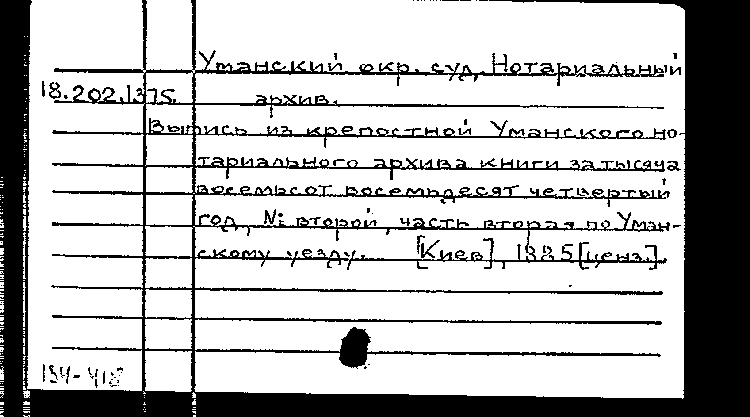 Уманский окр. суд, Нотариальный
18.202.1375. архив.
Выпись из крепостной Уманского но-
тариального архива книги за тысяча
восемьсот восемьдесят четвертый
год, № второй, часть вторая по Уман-
скому уезду. [Киев], 1885 [ценз.].
184-418